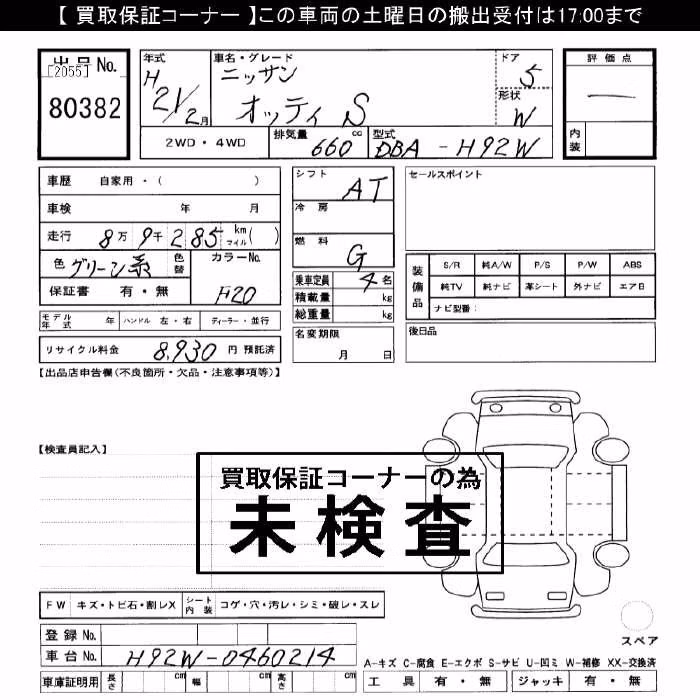 【 買取保証コーナー 】この車両の土曜日の搬出受付は17:00まで
出品No.
[2055]
80382
年式
H21/2月
車名・グレード
ニッサン
オッティ S
ドア
5
形状
W
評価点
—
内装
2WD・4WD
排気量 660 cc
型式 DBA-H92W
車歴 自家用・( )
車検 年 月
走行 8万9千285 km マイル( )
色 グリーン系
色替
カラーNo.
H20
保証書 有・無
モデル年式 年
ハンドル 左・右
ディーラー・並行
リサイクル料金 8,930 円 預託済
シフト
AT
冷房
燃料
G
乗車定員 4 名
積載量 kg
総重量 kg
名変期限
月 日
セールスポイント
装備品
S/R 純A/W P/S P/W ABS
純TV 純ナビ 革シート 外ナビ エアB
ナビ型番:
後日品
【出品店申告欄(不良箇所・欠品・注意事項等)】
【検査員記入】
買取保証コーナーの為
未検査
FW キズ・トビ石・割レX
シート内装 コゲ・穴・汚レ・シミ・破レ・スレ
スペア
登録No.
車台No. H92W-0460214
車庫証明用 長さ cm 幅 cm 高さ cm
A-キズ C-腐食 E-エクボ S-サビ U-凹ミ W-補修 XX-交換済
工具 有・無 ジャッキ 有・無